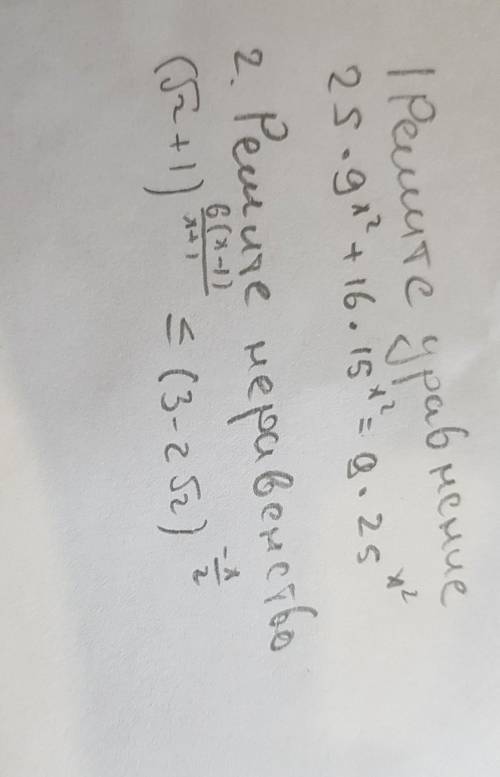 1 Решите уравнение
25 · 9^{x^2} + 16 · 15^{x^2} = 9 · 25^{x^2}
2. Решите неравенство
(√2 + 1)^{\frac{6(x-1)}{x+1}} ≤ (3 - 2√2)^{\frac{-x}{2}}